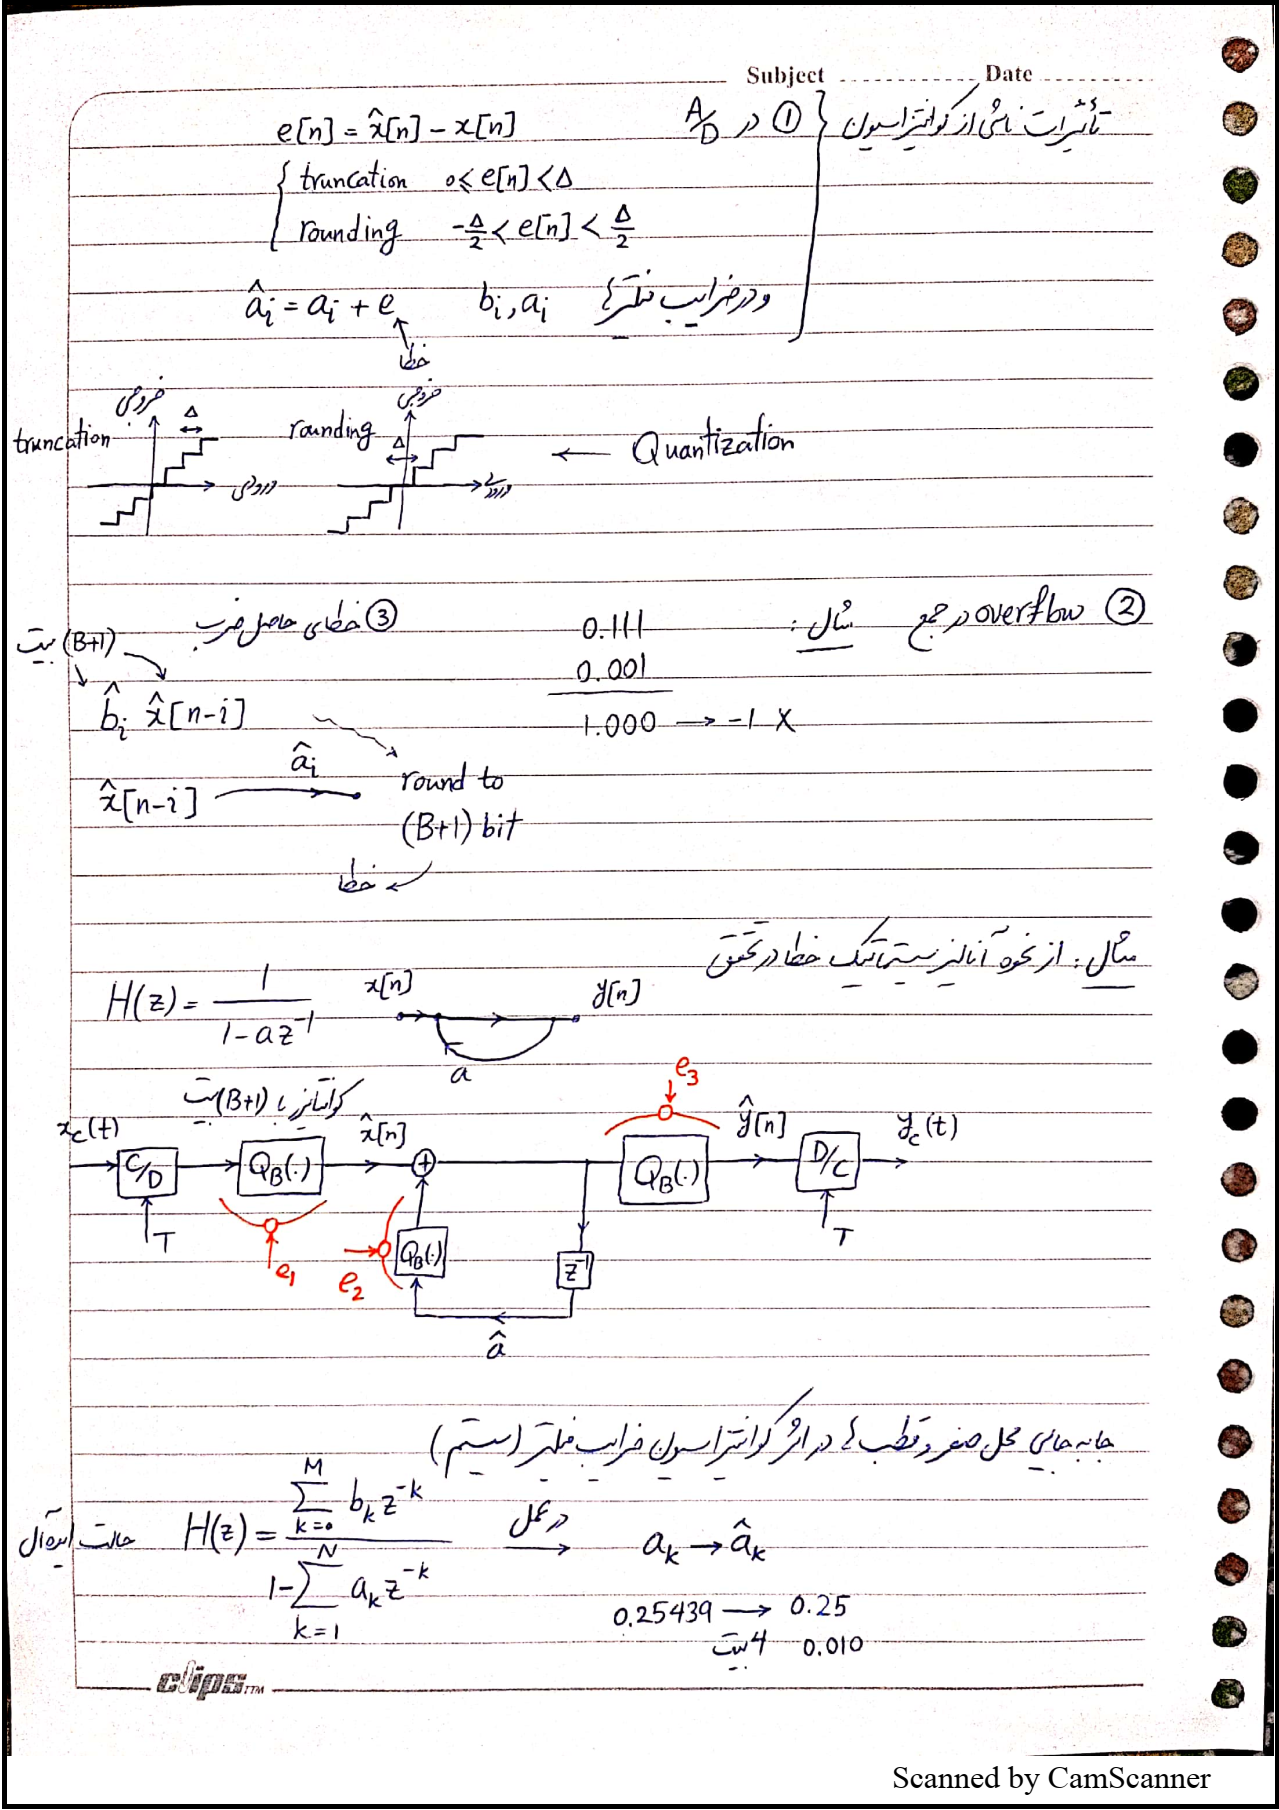 Subject ............... Date ...............
تأثیرات ناشی از کوانتیزاسیون { ① در A/D
e[n] = x̂[n] − x[n]
truncation 0 ≤ e[n] < Δ
rounding −Δ/2 < e[n] < Δ/2
و در ضرایب فیلترها bᵢ, aᵢ âᵢ = aᵢ + e
خطا
Quantization ←
rounding Δ خروجی ورودی
truncation Δ خروجی ورودی
② overflow در جمع مثال:
0.111
0.001
1.000 → −1 X
③ خطای حاصل ضرب
(B+1) بیت
b̂ᵢ x̂[n−i]
x̂[n−i] âᵢ
round to
(B+1) bit
خطا
مثال: از نحوه آنالیز سیستماتیک خطا در تحقق
H(z) = 1 / (1 − az⁻¹) x[n] y[n] a
کوانتایزر با (B+1) بیت
x_c(t) C/D T Q_B(.) x̂[n] + Q_B(.) ŷ[n] D/C T y_c(t)
e₁ e₂ e₃
Q_B(.) z⁻¹
â
جابه جایی محل صفر و قطب ها در اثر کوانتیزاسیون ضرایب فیلتر (سیستم)
حالت ایده‌آل H(z) = ∑_{k=0}^{M} b_k z^{−k} / (1 − ∑_{k=1}^{N} a_k z^{−k}) در عمل → a_k → â_k
0.25439 → 0.25
4 بیت 0.010
clips TM
Scanned by CamScanner